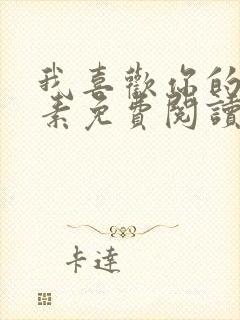 我喜歡你的
素免費閱讀
卡達